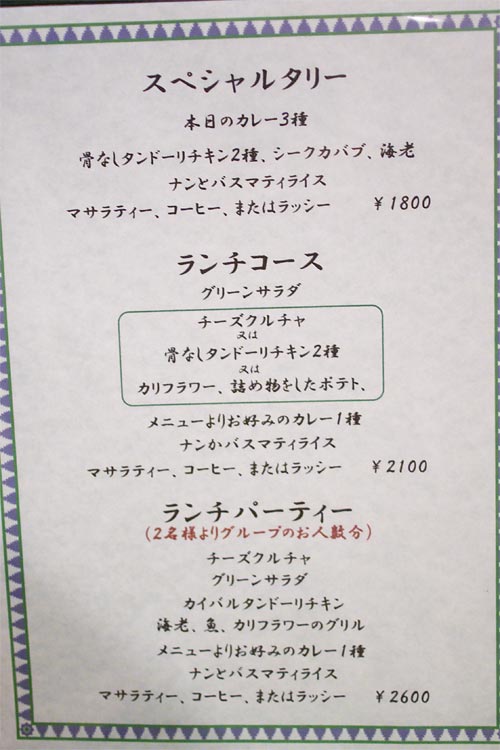 スペシャルタリー
本日のカレー3種
骨なしタンドーリチキン2種、シークカバブ、海老
ナンとバスマティライス
マサラティー、コーヒー、またはラッシー ¥1800
ランチコース
グリーンサラダ
チーズクルチャ
又は
骨なしタンドーリチキン2種
又は
カリフラワー、詰め物をしたポテト、
メニューよりお好みのカレー1種
ナンかバスマティライス
マサラティー、コーヒー、またはラッシー ¥2100
ランチパーティー
(2名様よりグループのお人数分)
チーズクルチャ
グリーンサラダ
カイバルタンドーリチキン
海老、魚、カリフラワーのグリル
メニューよりお好みのカレー1種
ナンとバスマティライス
マサラティー、コーヒー、またはラッシー ¥2600